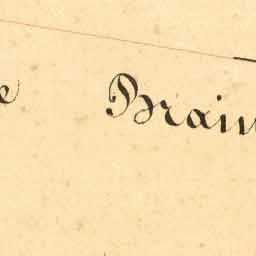 e Brain